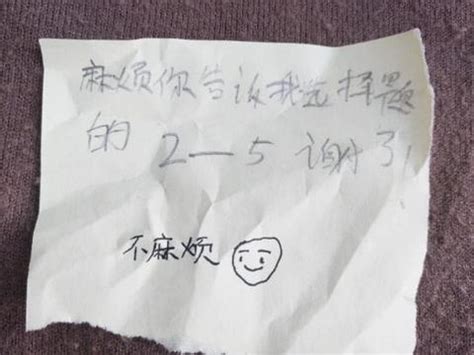 麻烦你告诉我选择题
的 2—5 谢了！
不麻烦